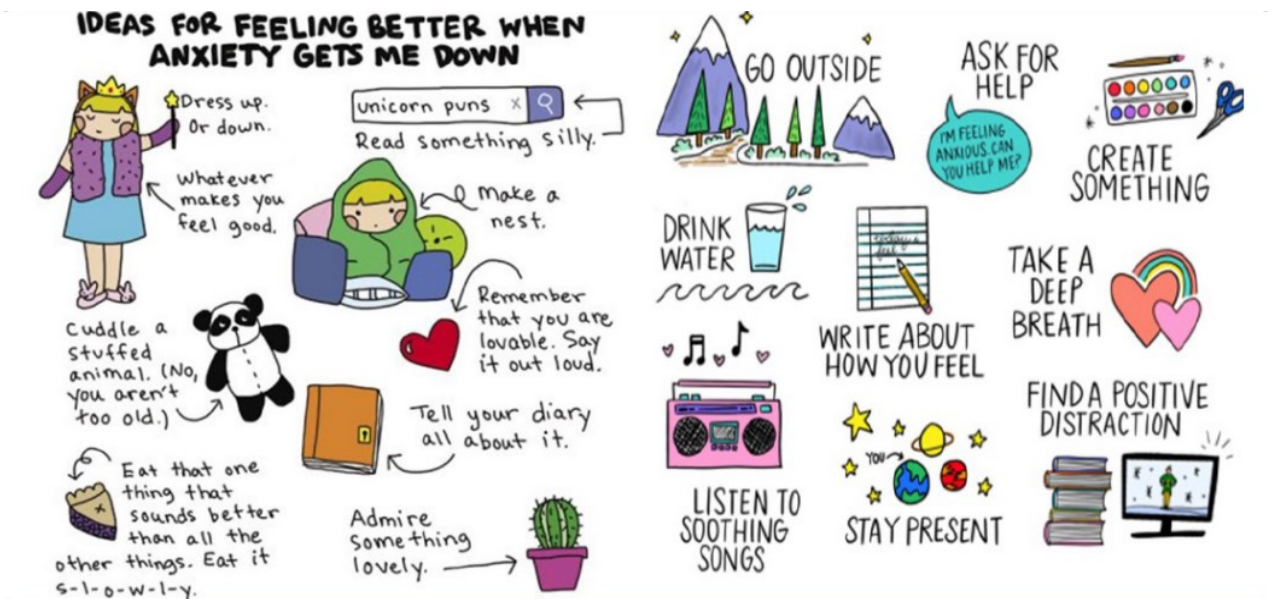 IDEAS FOR FEELING BETTER WHEN
ANXIETY GETS ME DOWN
Dress up.
Or down.
Whatever
makes you
feel good.
unicorn puns x
Read something silly.
Make a
nest.
Remember
that you are
lovable. Say
it out loud.
Cuddle a
stuffed
animal. (No,
you aren't
too old.)
Tell your diary
all about it.
Eat that one
thing that
sounds better
than all the
other things. Eat it
s-l-o-w-l-y.
Admire
something
lovely.
GO OUTSIDE
ASK FOR
HELP
I'M FEELING
ANXIOUS. CAN
YOU HELP ME?
CREATE
SOMETHING
DRINK
WATER
WRITE ABOUT
HOW YOU FEEL
TAKE A
DEEP
BREATH
LISTEN TO
SOOTHING
SONGS
YOU
STAY PRESENT
FIND A POSITIVE
DISTRACTION